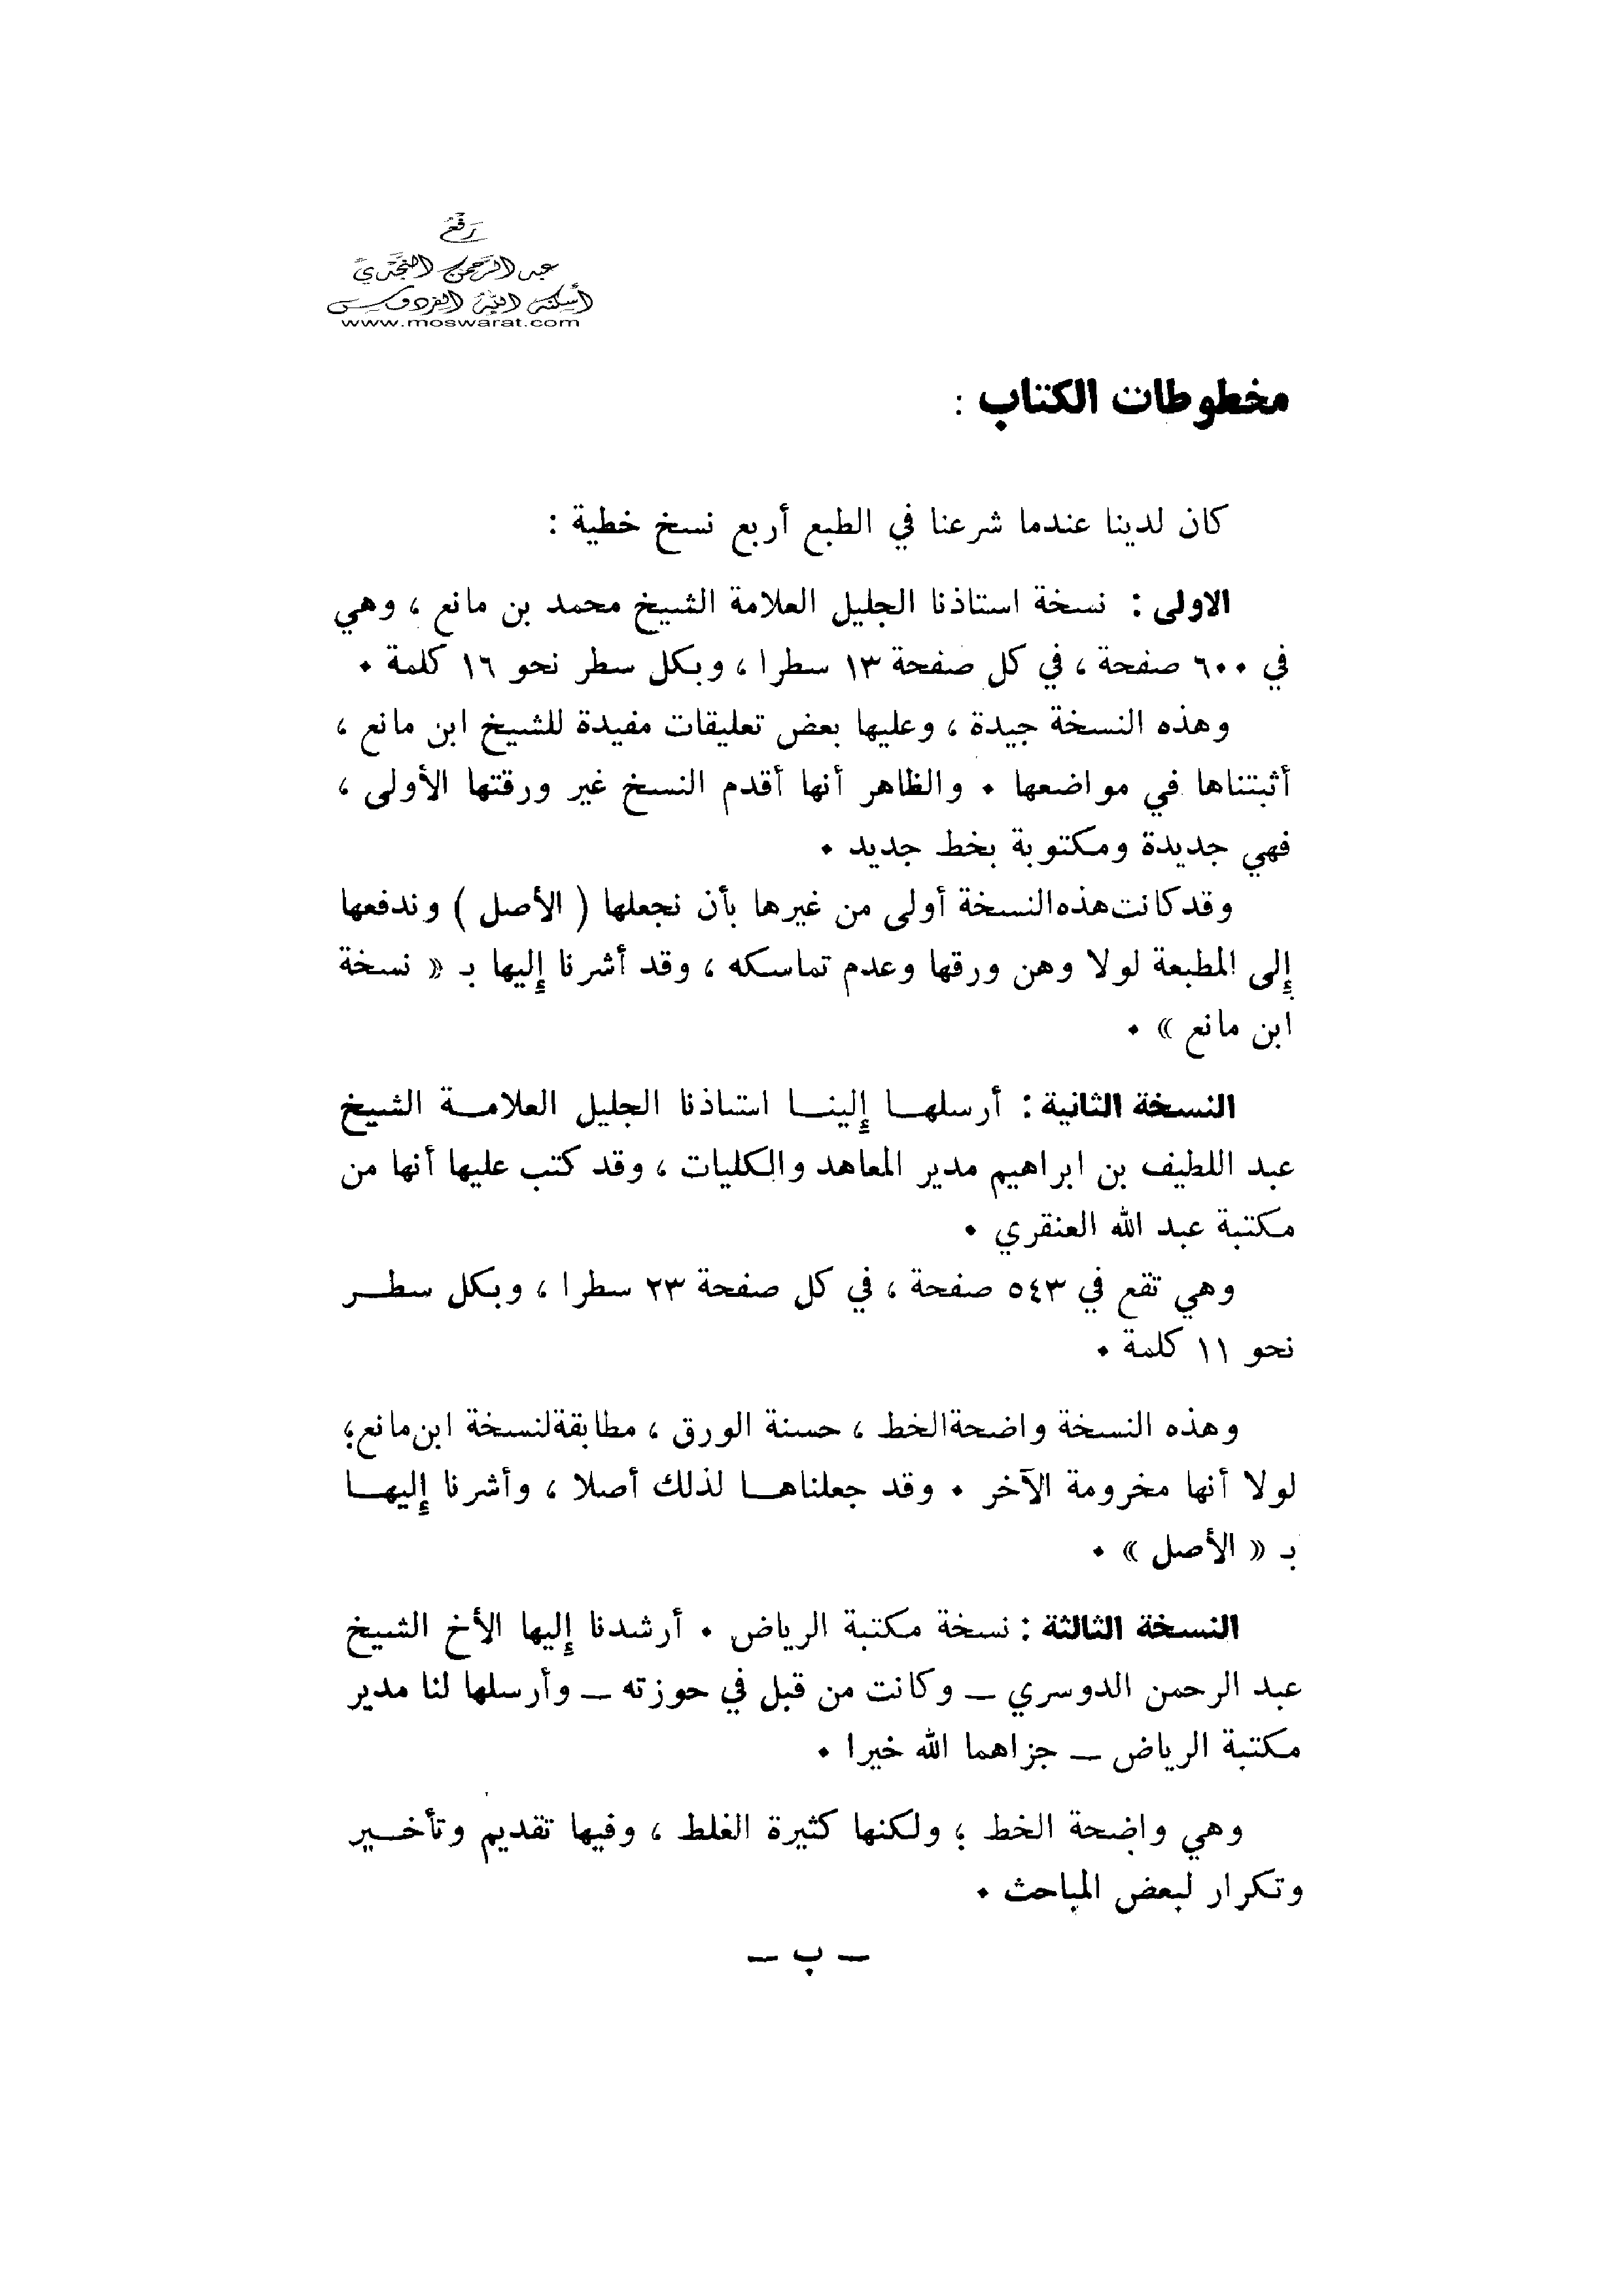 رفع
عبد الرحمن النجدي
أسكنه الله الفردوس
www.moswarat.com
مخطوطات الكتاب :
كان لدينا عندما شرعنا في الطبع أربع نسخ خطية :
الاولى : نسخة استاذنا الجليل العلامة الشيخ محمد بن مانع ، وهي
في ٦٠٠ صفحة ، في كل صفحة ١٣ سطرا ، وبكل سطر نحو ١٦ كلمة .
وهذه النسخة جيدة ، وعليها بعض تعليقات مفيدة للشيخ ابن مانع ،
أثبتناها في مواضعها . والظاهر أنها أقدم النسخ غير ورقتها الأولى ،
فهي جديدة ومكتوبة بخط جديد .
وقد كانت هذه النسخة أولى من غيرها بأن نجعلها ( الأصل ) وندفعها
إلى المطبعة لولا وهن ورقها وعدم تماسكه ، وقد أشرنا إليها بـ « نسخة
ابن مانع » .
النسخة الثانية : أرسلهـا إلينـا استاذنا الجليل العلامـة الشيخ
عبد اللطيف بن ابراهيم مدير المعاهد والكليات ، وقد كتب عليها أنها من
مكتبة عبد الله العنقري .
وهي تقع في ٥٤٣ صفحة ، في كل صفحة ٢٣ سطرا ، وبكل سطـر
نحو ١١ كلمة .
وهذه النسخة واضحة الخط ، حسنة الورق ، مطابقة لنسخة ابن مانع ؛
لولا أنها مخرومة الآخر . وقد جعلناهـا لذلك أصلا ، وأشرنا إليهـا
بـ « الأصل » .
النسخة الثالثة : نسخة مكتبة الرياض . أرشدنا إليها الأخ الشيخ
عبد الرحمن الدوسري – وكانت من قبل في حوزته – وأرسلها لنا مدير
مكتبة الرياض – جزاهما الله خيرا .
وهي واضحة الخط ؛ ولكنها كثيرة الغلط ، وفيها تقديم وتأخـير
وتكرار لبعض المباحث .
– ب –